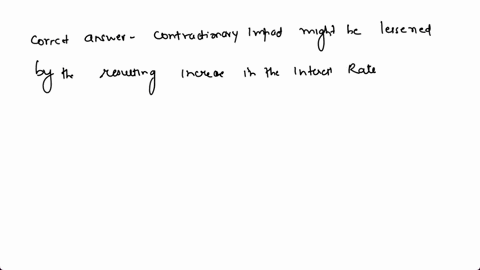 correct answer - contractionary impact might be lessened
by the resulting increase in the interest Rate